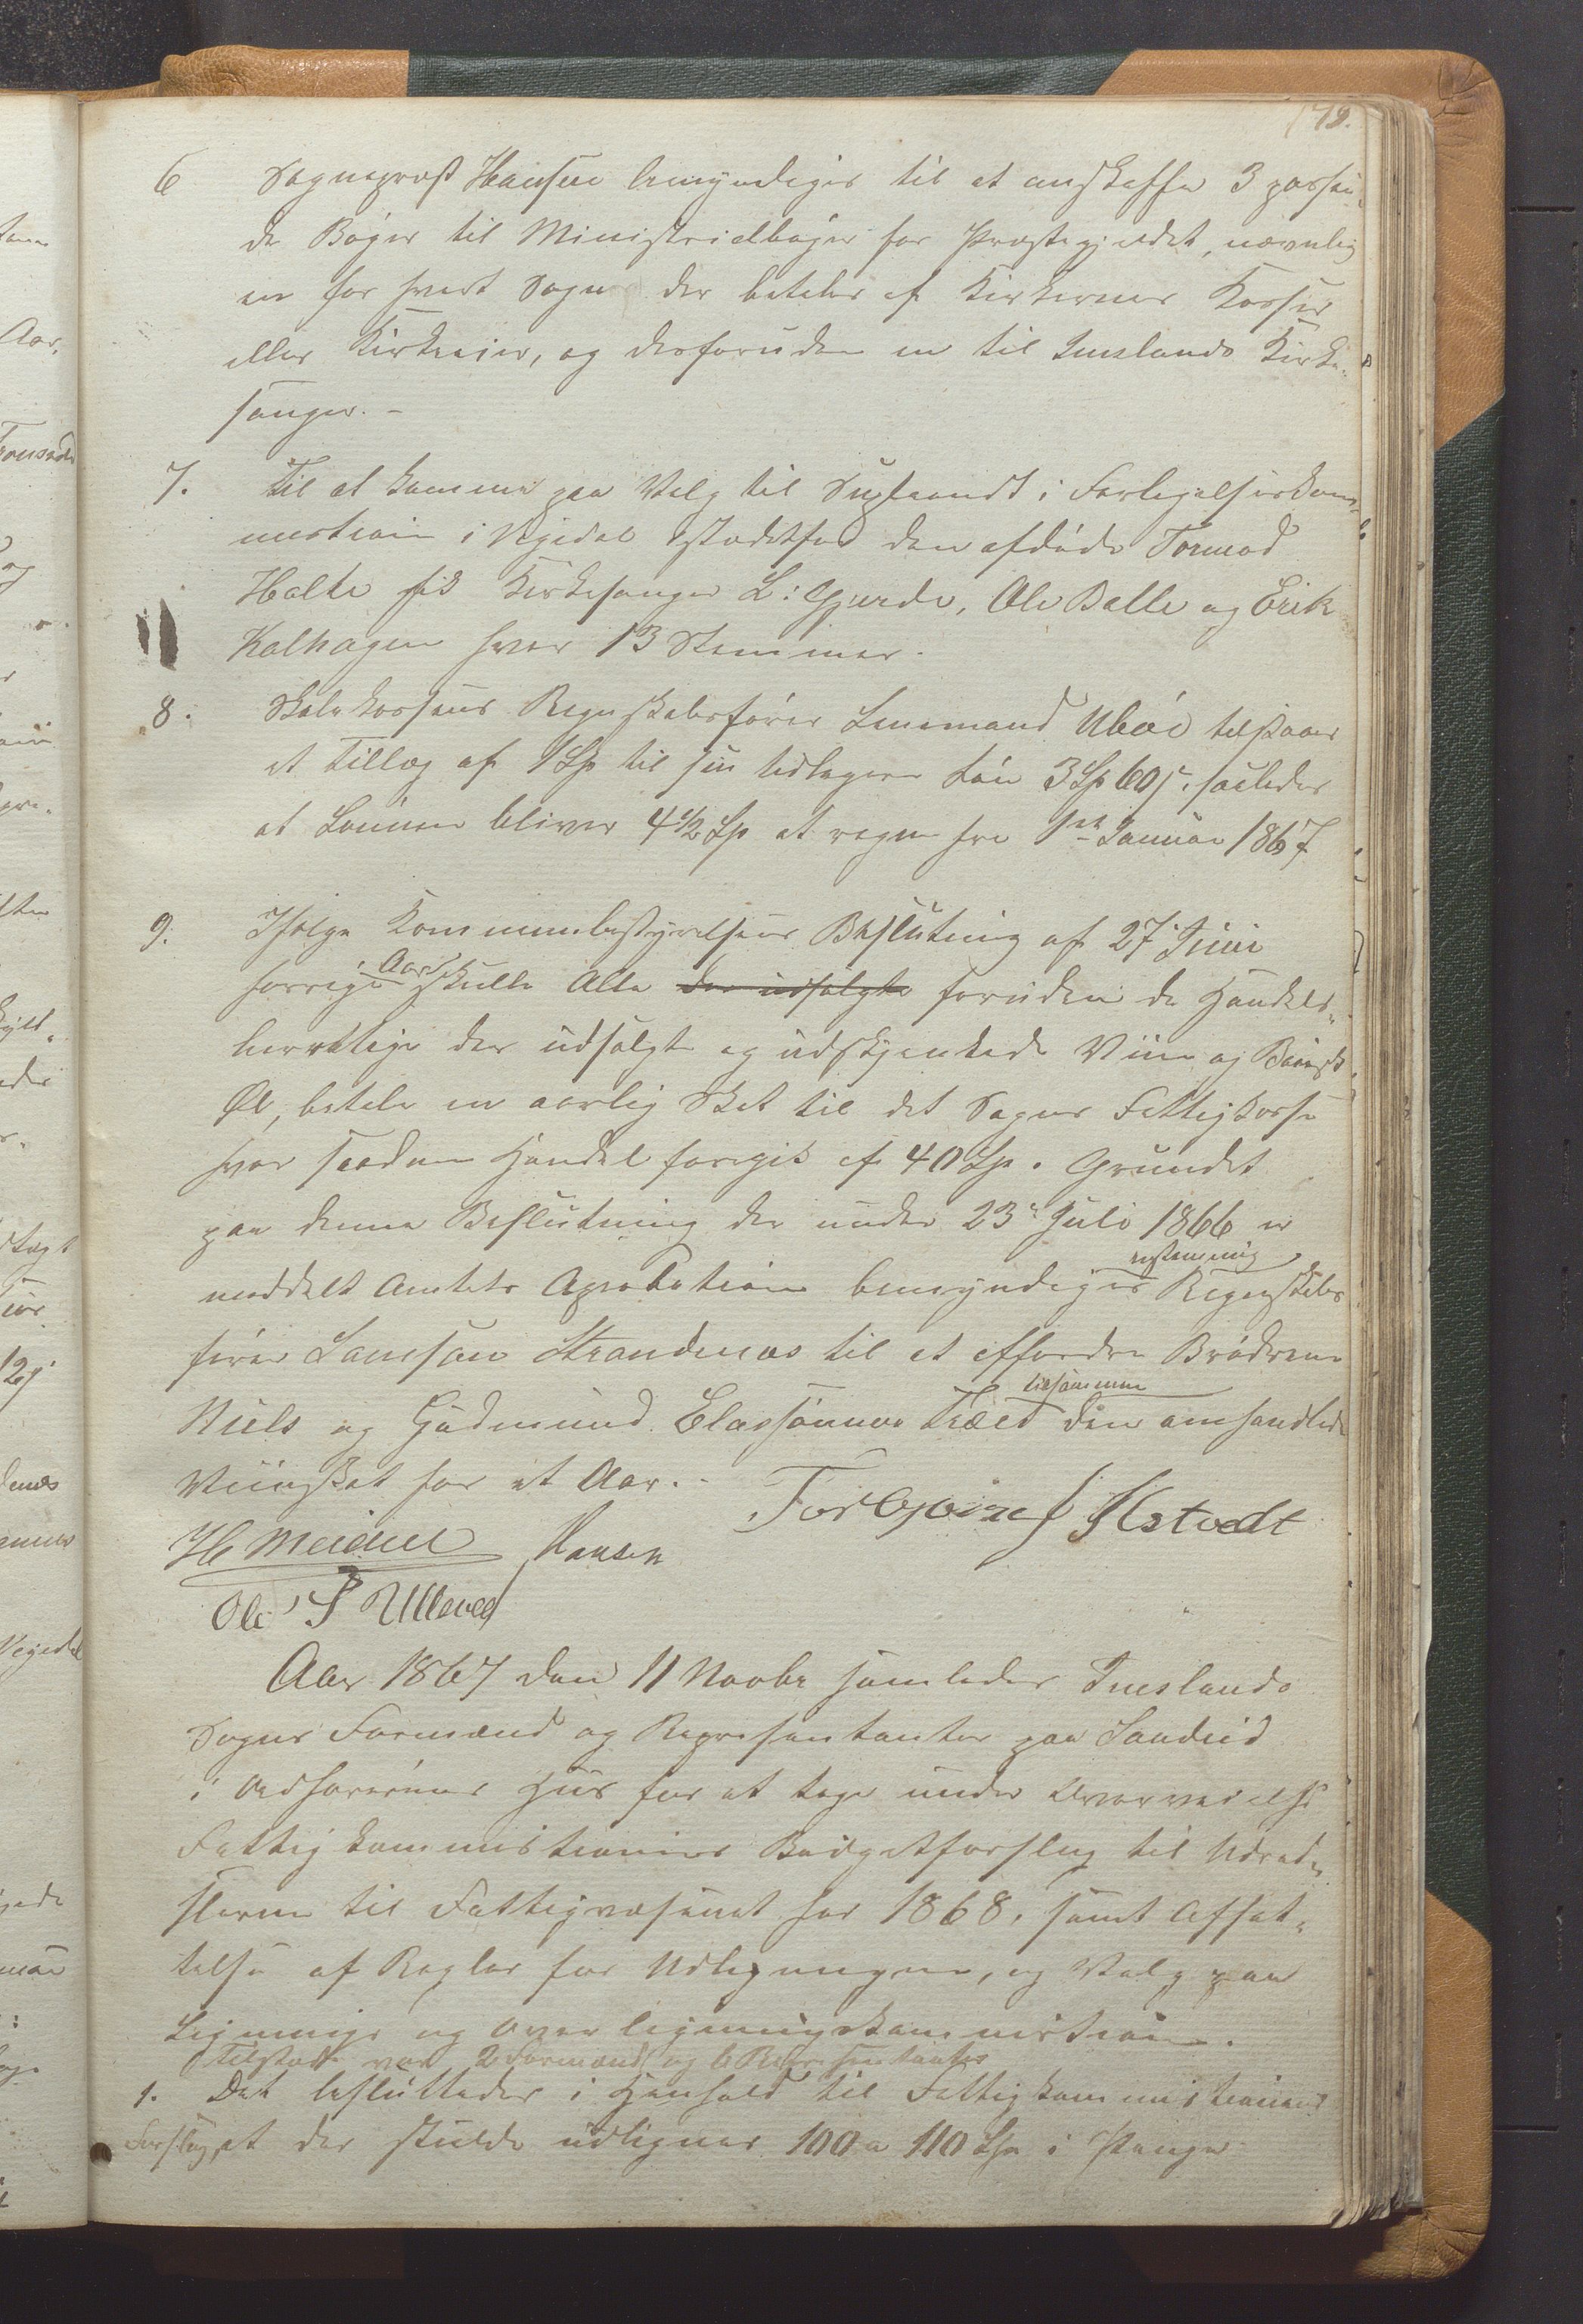 179.
6 Sognepræst Hansen bemyndiges til at anskaffe 3 passen-
de Bøger til Ministrialbøger for Præstegjeldet, nævnlig
en for hvert Sogn der betales af Kirkernes Kasser
eller Kirkeeier, og desforuden en til Imslands Kirke-
sanger. -
7. Til at komme paa Valg til Supleandt i Forligelseskom-
mistion i Vigedal istedetfor den afdøde Tormod
Halte fik Kirkesanger L: Gjerde, Ole Balle og Erik
Kalhagen hver 13 Stemmer.
8. Skolekassens Regnskabsfører Lensmand Ubøe tilstaaes
et Tillæg af 1 Sp til sin tidligere Løn 3 Sp 60 s, saaledes
at Lønnen bliver 4 1/2 Sp at regne fra 1ste Januar 1867
9. Ifølge Kommunebestyrelsens Beslutning af 27 Juni
forrige Aar skulle Alle der udsolgte foruden de Handels-
berretige der udsolgte og udskjenkede Viin og Baiersk
Øl, betale en aarlig Skat til det Sogns Fattigkasse
hvor saadan Handel foregik af 40 Sp. Grundet
paa denne Beslutning der under 23 Juli 1866 er
enstemmig
meddelt Amtets Aprobation bemyndiges Regnskabs
fører Samson Strandenæs til at affordre Brødrene
tilsammen
Niels og Gudmund Elassønner Træet den omhandlede
Viinskat for et Aar. -
Torbjøren J Ilstvedt
H Meidell Hansen
Ole S Ulleved
Aar 1867 den 11 Novbr samledes Imslands
Sogns Formænd og Repræsentanter paa Sandeid
i Ordførerens Huus for at tage under Overveielse
Fattigkommistionens Budgetforslag til Udred-
slerne til Fattigvæsenet for 1868, samt Affat-
telse af Regler for Udligningen, og Valg paa
Lignings og Overligningskommistion.
Tilstede var 2 Formænd og 6 Repræsentanter
1. Det besluttedes i Henhold til Fattigkommistionens
Forslag, at der skulde udlignes 100 a 110 Sp i Penge